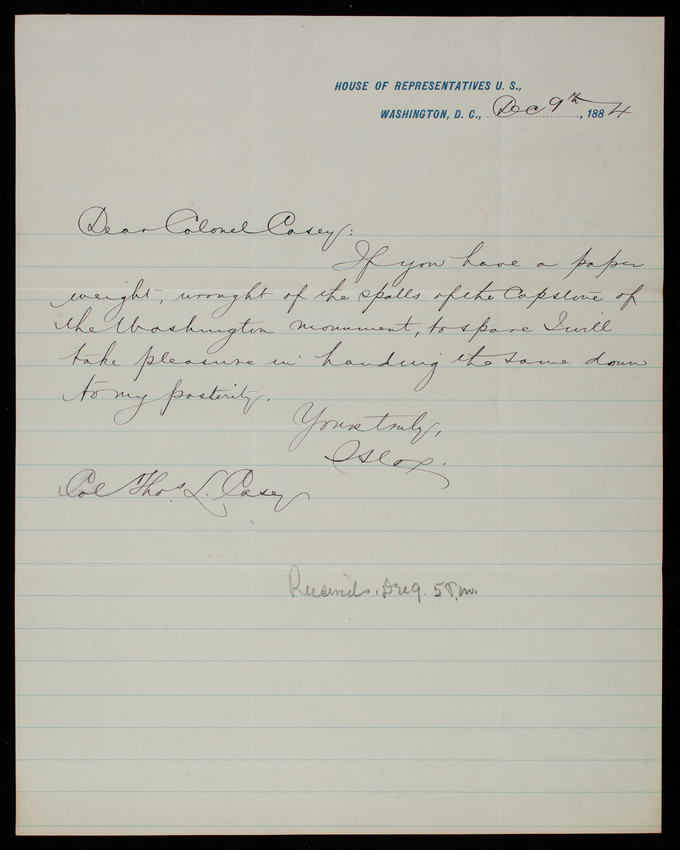 HOUSE OF REPRESENTATIVES U. S.,
WASHINGTON, D. C., Dec 9th, 1884
Dear Colonel Casey:
If you have a paper
weight, wrought of the spalls of the Capstone of
the Washington monument, to spare I will
take pleasure in handing the same down
to my posterity.
Yours truly,
Col Thos. L. Casey
Received. Dec 9. 5 P.m.